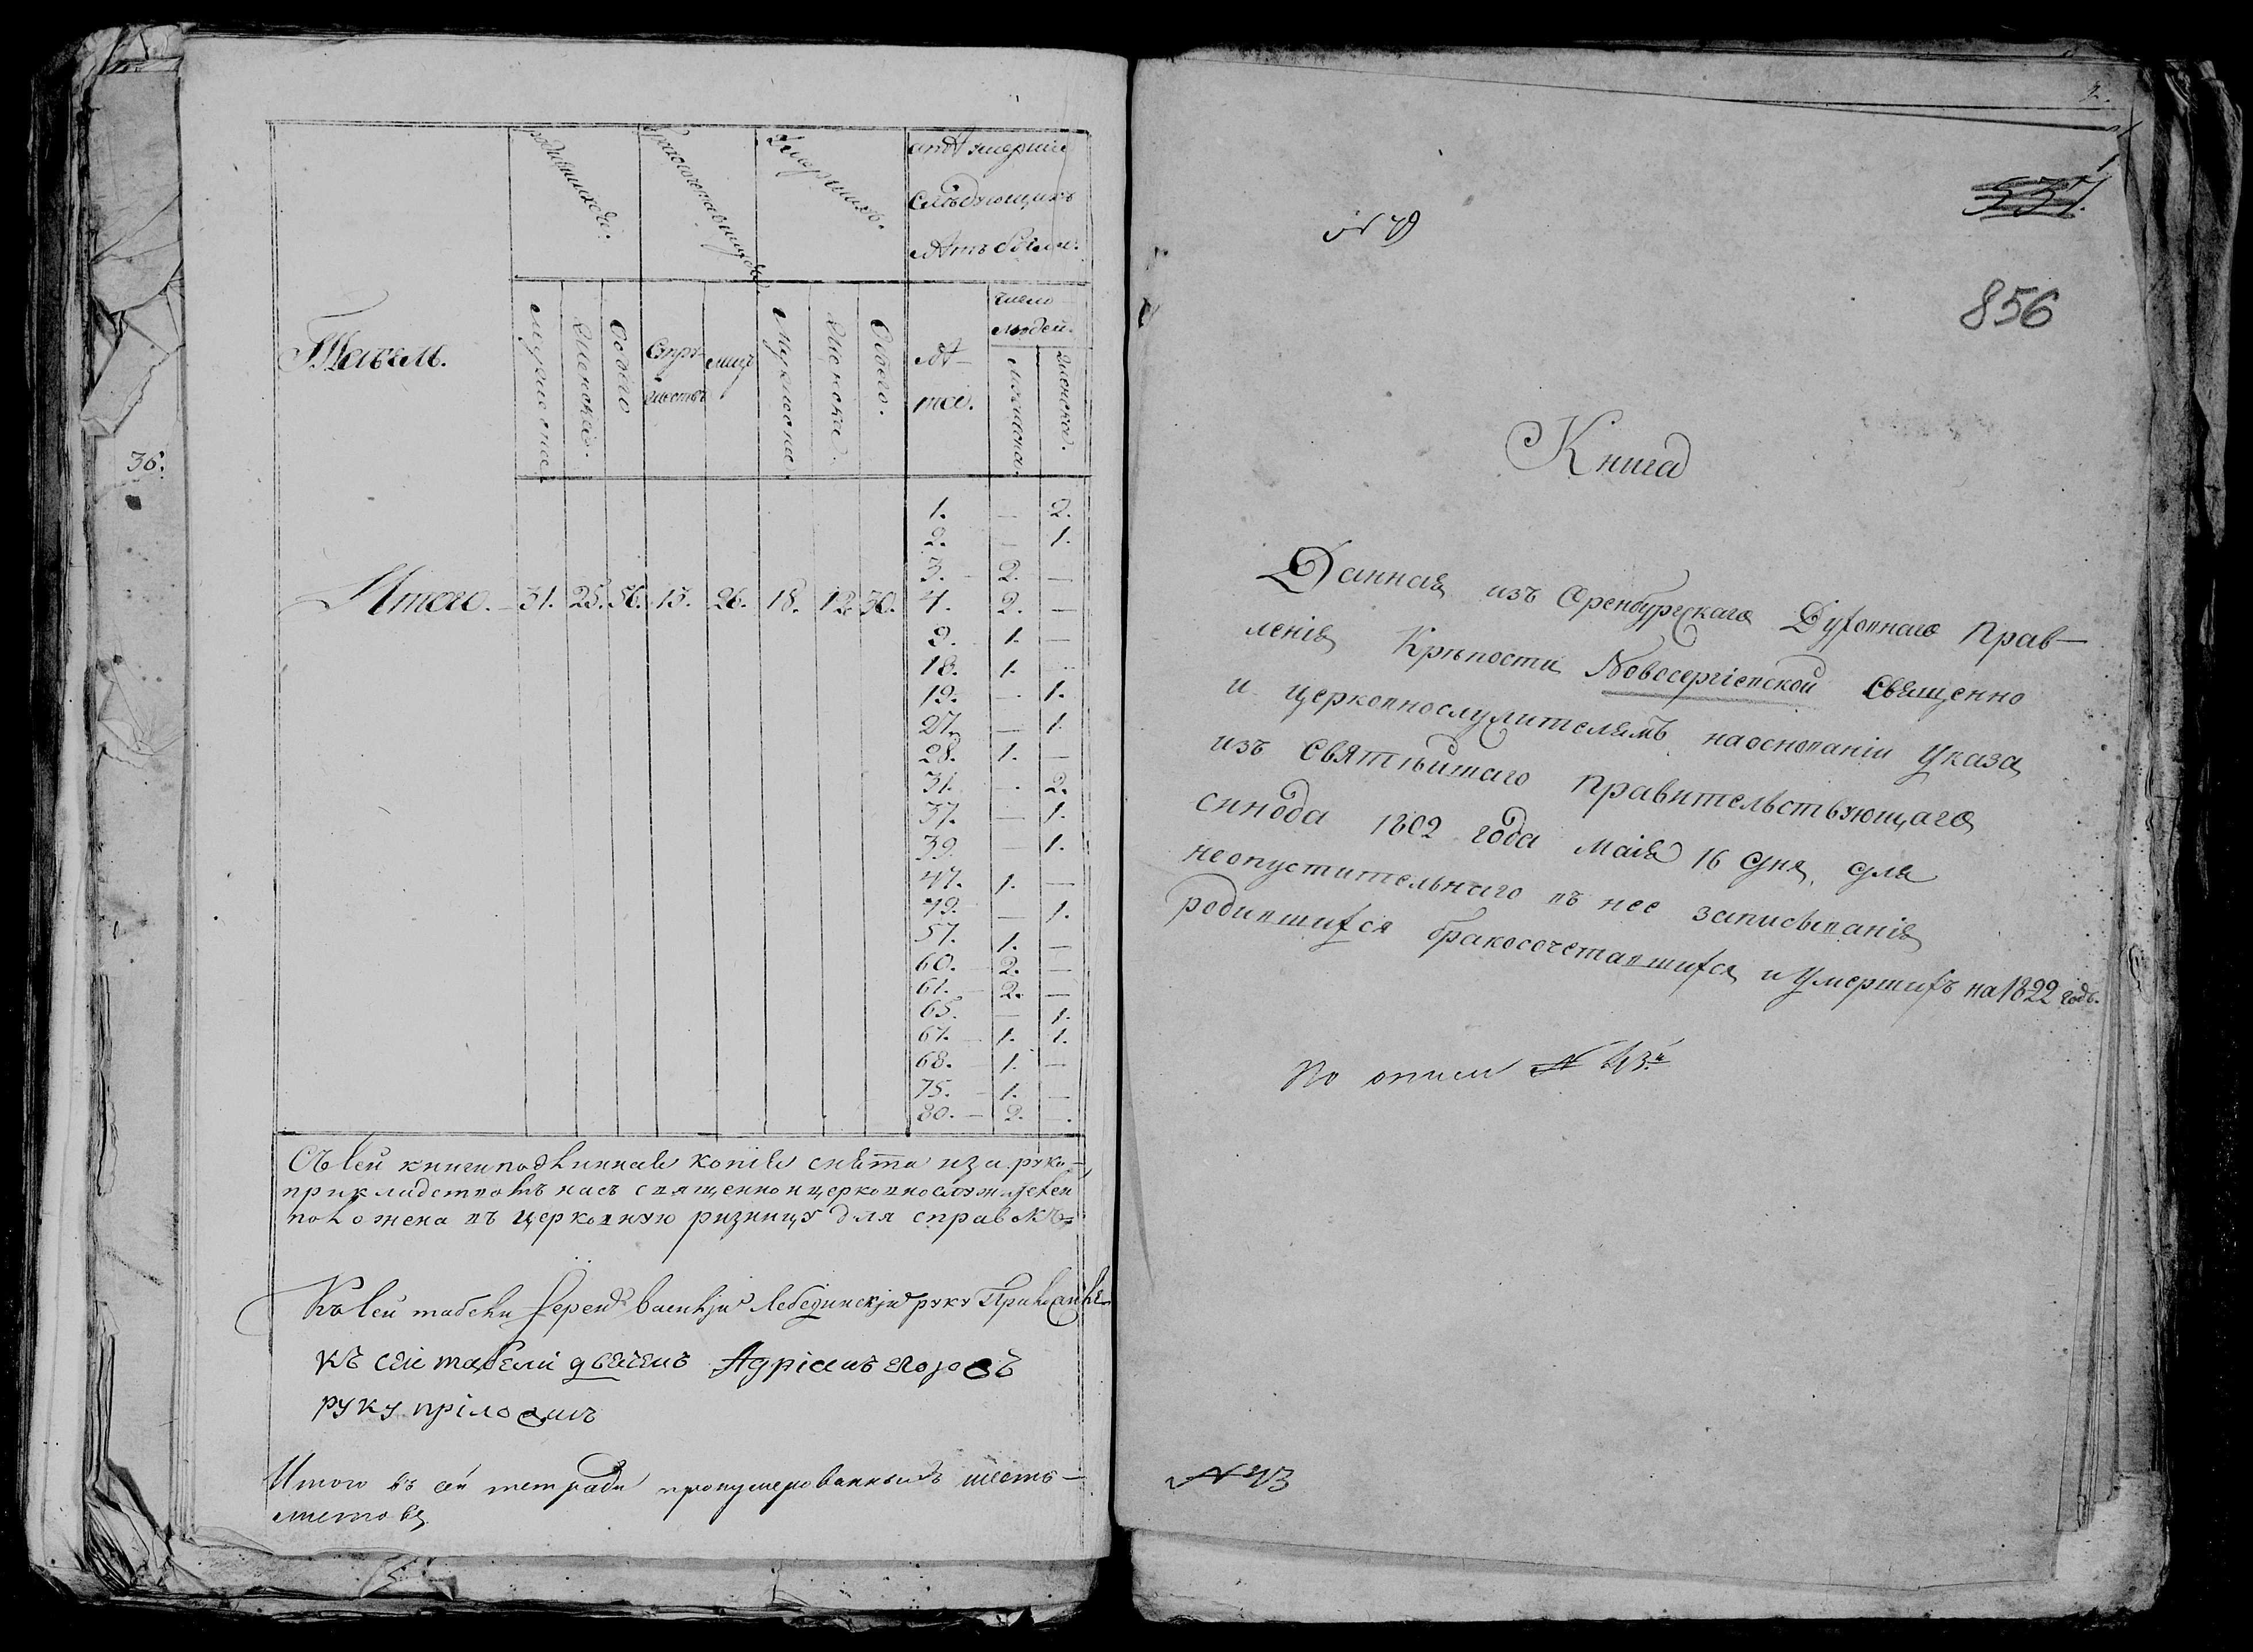 36.
Табель.
родившихся.
бракосочетавшихся
Умершихъ.
Слѣдующихъ
лѣтъ были.
Мужеска
Женска.
Обоего
Супру-
жествъ
лицъ
Мужеска
Женска
Обоего.
лѣ-
та.
число
людей.
мужеска.
женска.
Итого. 31. 25. 56. 13. 26. 18. 12. 30.
1. — 2.
2. — 1.
3. 2. —
4. 2. —
9. 1. —
18. 1. —
19. — 1.
27. — 1.
28. 1. —
31. — 2.
37. — 1.
39. — 1.
47. 1. —
49. — 1.
57. 1. —
60. 2. —
61. 2. —
65. — 1.
67. 1. 1.
68. 1. —
75. 1. —
80. 2. —
Съ сей книги подлинная копия снята и за руко-
прикладствомъ насъ священно и церковнослужителей
положена въ церковную ризницу для справокъ
Къ сей табели Іерей Василій Лебединскій руку Приложилъ
Къ сеі табелі дьячекъ Адріанъ Егоровъ
руку пріложилъ
Итого въ сей тетради пронумерованныхъ шесть
листовъ
2.
337.
856
Книга
Данная изъ Оренбургскаго Духовнаго Прав-
ленія Крѣпости Новосергіевской Священно
и церковнослужителямъ на основаніи Указа
изъ Святѣйшаго Правительствующаго
синода 1802 года Маія 16 дня, для
неопустительнаго въ нее записыванія
родившихся бракосочетавшихся и Умершихъ на 1822 годъ.
По описи № 43й
№ 43